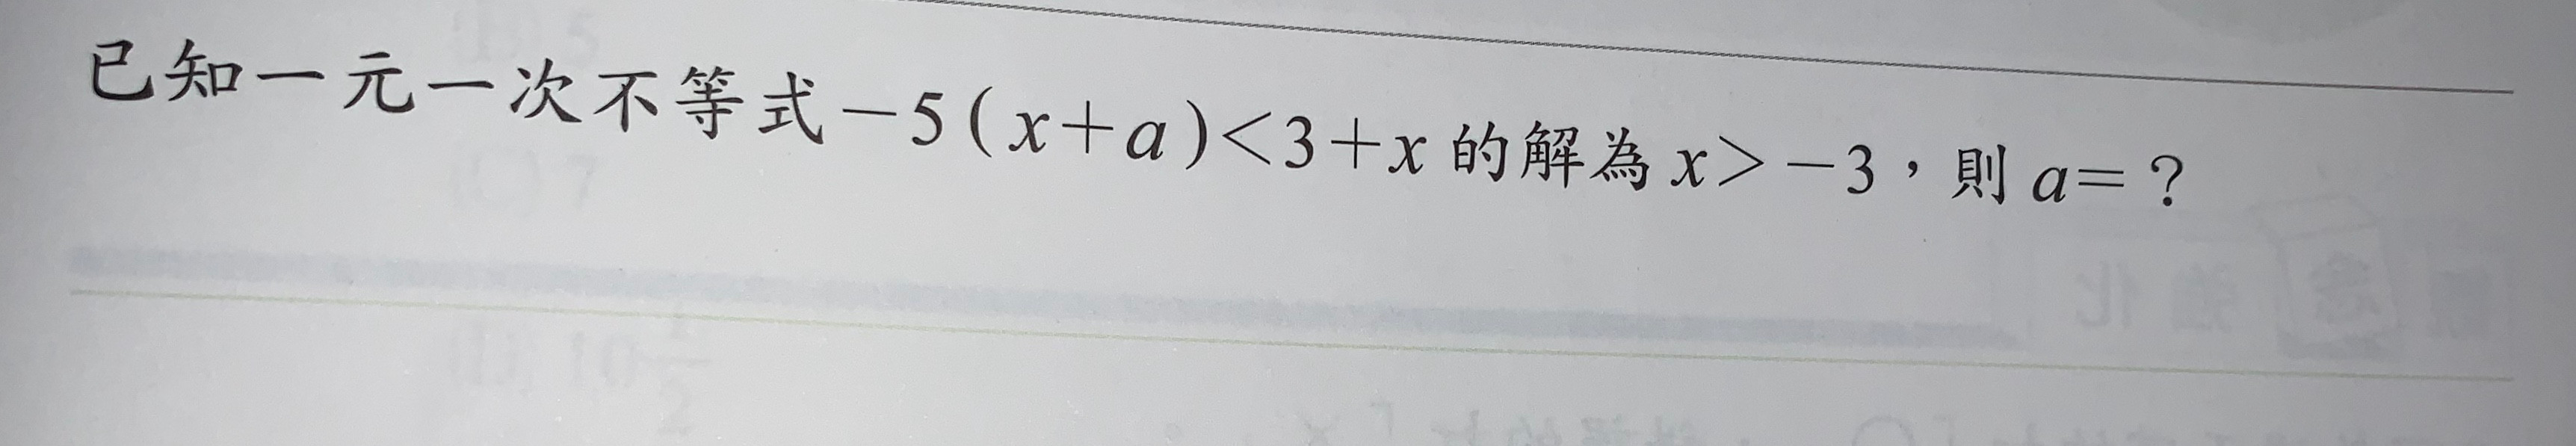 已知一元一次不等式－5(x＋a)<3＋x的解為x>－3，則a=？